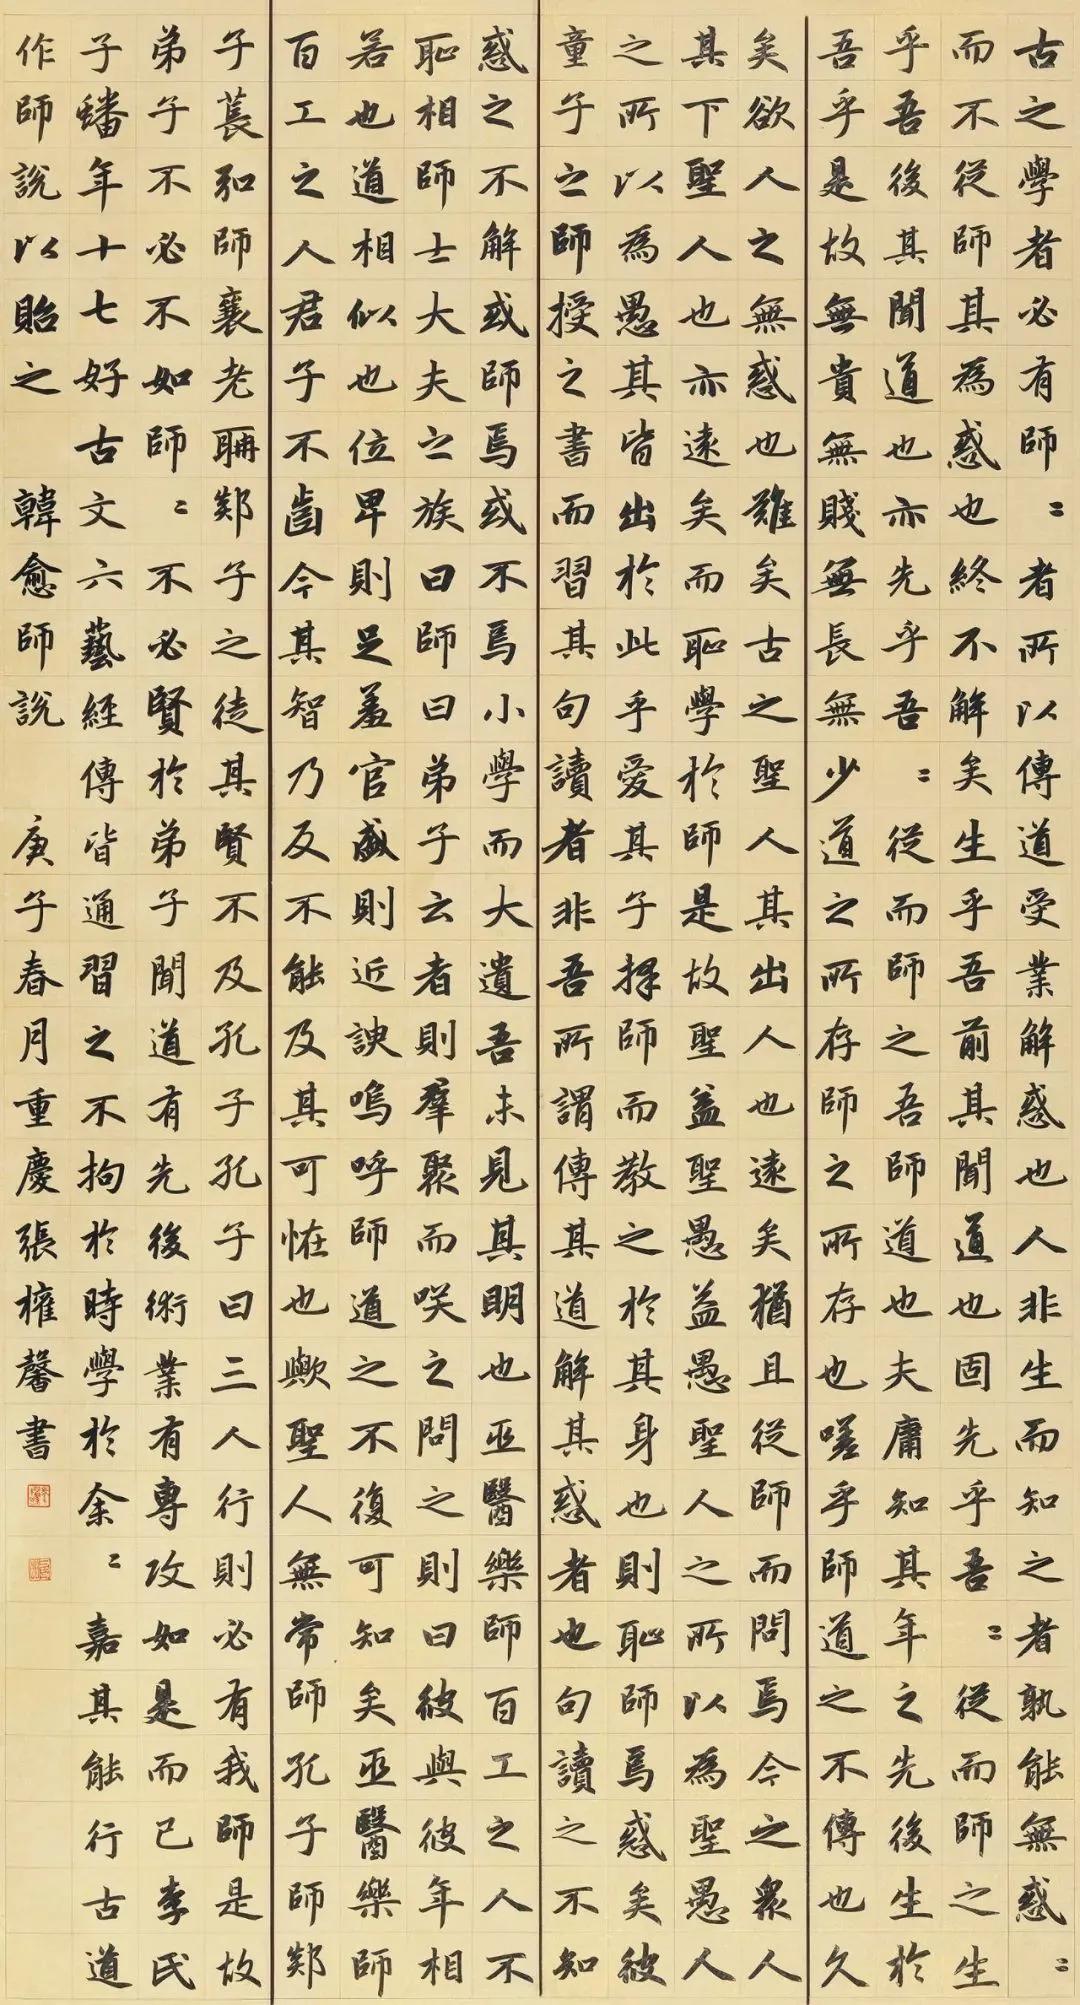 古之學者必有師〻者所以傳道受業解惑也人非生而知之者孰能無惑〻
而不從師其為惑也終不解矣生乎吾前其聞道也固先乎吾〻從而師之生
乎吾後其聞道也亦先乎吾〻從而師之吾師道也夫庸知其年之先後生於
吾乎是故無貴無賤無長無少道之所存師之所存也嗟乎師道之不傳也久
矣欲人之無惑也難矣古之聖人其出人也遠矣猶且從師而問焉今之衆人
其下聖人也亦遠矣而恥學於師是故聖益聖愚益愚聖人之所以為聖愚人
之所以為愚其皆出於此乎愛其子擇師而教之於其身也則恥師焉惑矣彼
童子之師授之書而習其句讀者非吾所謂傳其道解其惑者也句讀之不知
惑之不解或師焉或不焉小學而大遺吾未見其明也巫醫樂師百工之人不
恥相師士大夫之族曰師曰弟子云者則羣聚而咲之問之則曰彼與彼年相
若也道相似也位卑則足羞官盛則近諛嗚呼師道之不復可知矣巫醫樂師
百工之人君子不齒今其智乃反不能及其可恠也歟聖人無常師孔子師郯
子萇弘師襄老聃郯子之徒其賢不及孔子孔子曰三人行則必有我師是故
弟子不必不如師〻不必賢於弟子聞道有先後術業有專攻如是而已李氏
子蟠年十七好古文六藝經傳皆通習之不拘於時學於余〻嘉其能行古道
作師說以貽之 韓愈師說 庚子春月重慶張馨書